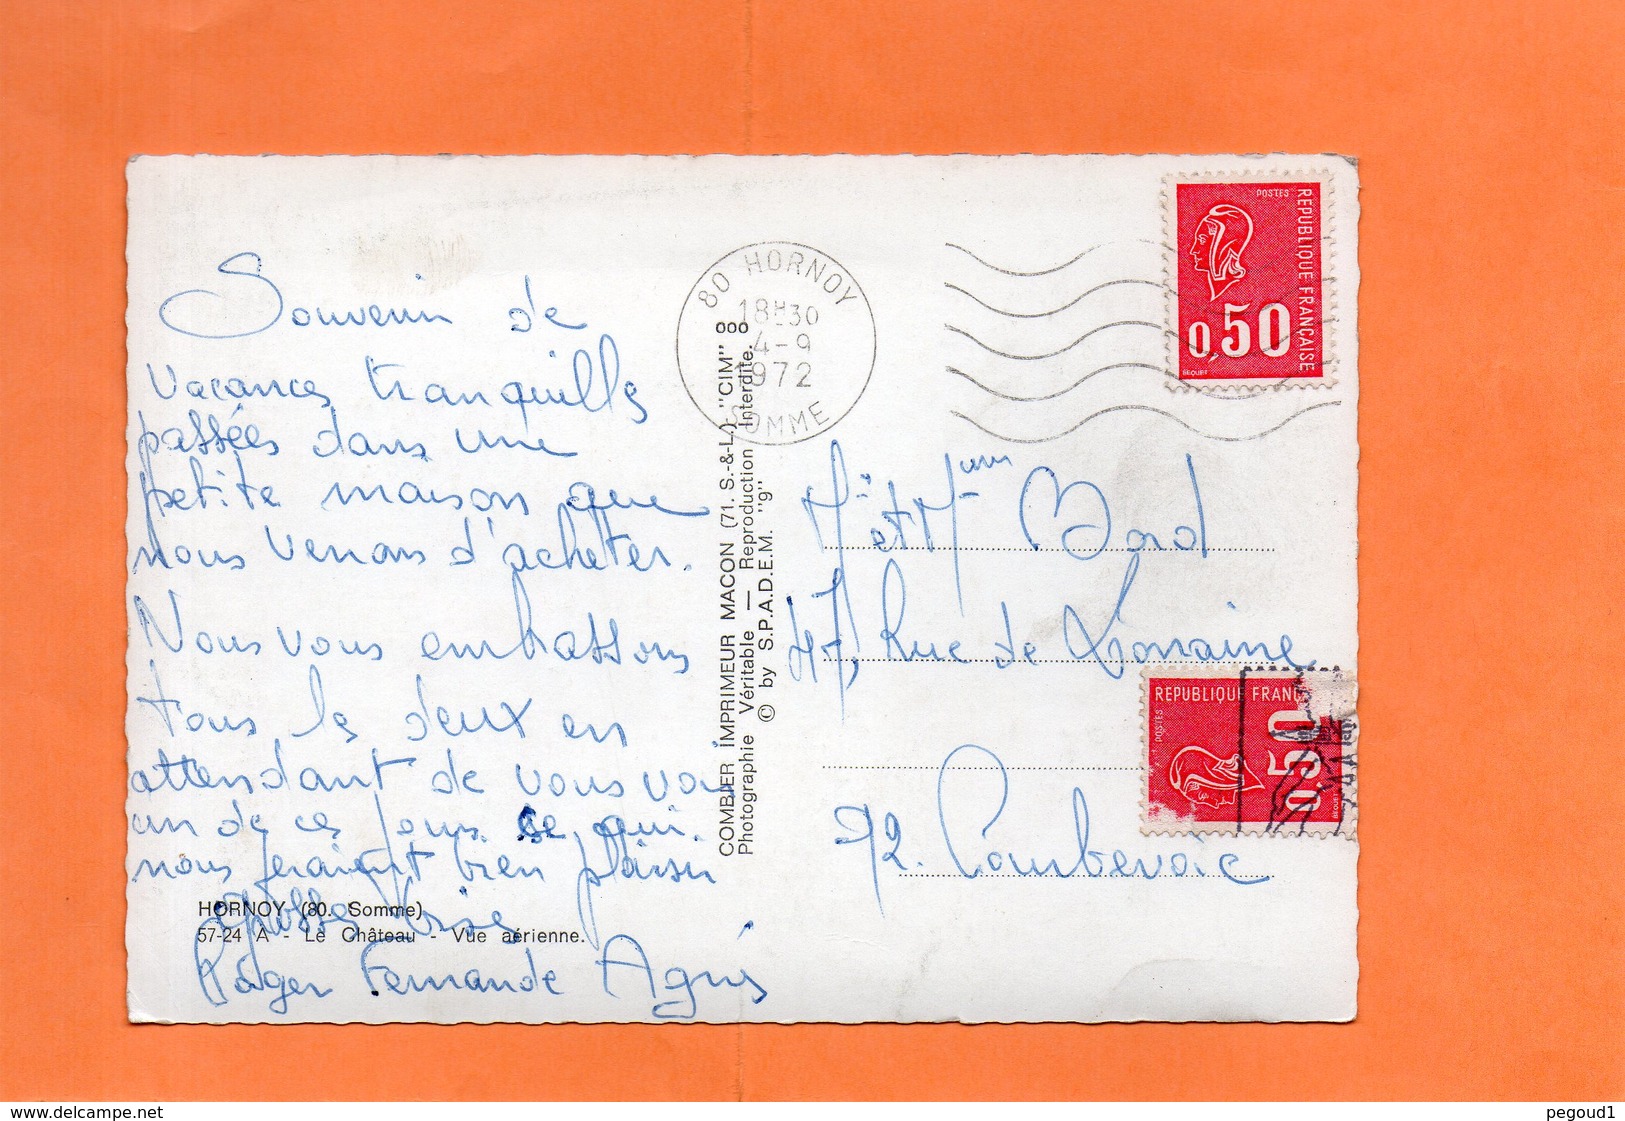 Souvenir de
vacances tranquilles
passées dans une
petite maison que
nous venons d'acheter.
Nous vous embrassons
tous les deux en
attendant de vous voir
un de ces jours ce qui
nous ferait bien plaisir
Grosses bises
Roger Fernande Agnès
HORNOY (80. Somme)
57-24 A - Le Château - Vue aérienne.
COMBIER IMPRIMEUR MACON (71. S.-&-L.) "CIM" ooo
Photographie Véritable — Reproduction Interdite.
© by S.P.A.D.E.M. "9"
80 HORNOY
18H30
4-9
1972
SOMME
POSTES
REPUBLIQUE FRANÇAISE
0,50
BEQUET
Mr et Mme Bord
47, Rue de Lorraine
92. Courbevoie
REPUBLIQUE FRANÇ
POSTES
0,50
www.delcampe.net
pegoud1